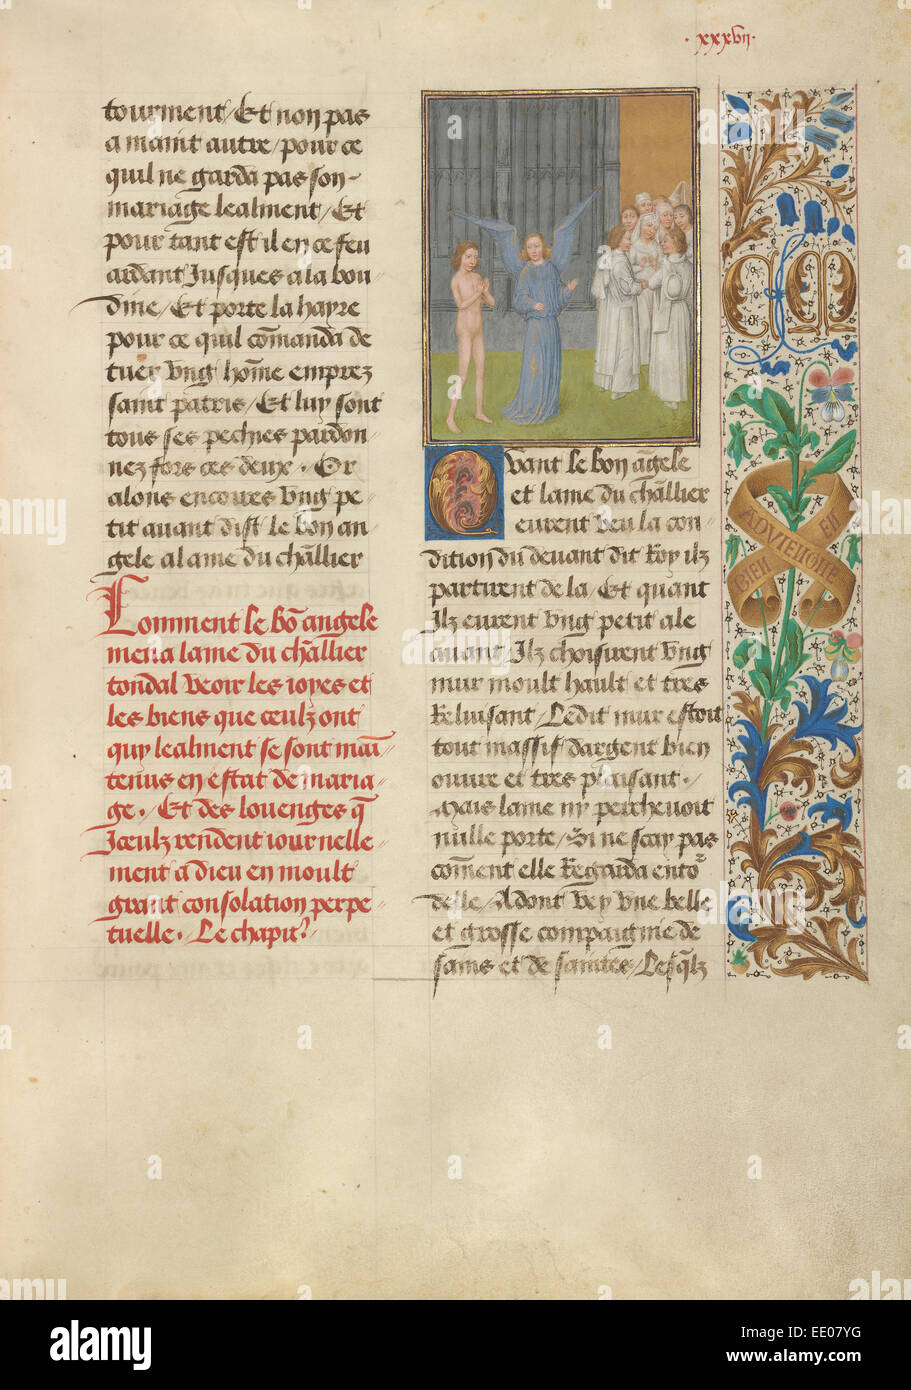 ·xxxvij·
tourment/ Et non pas
a maint autre/ pour ce
quil ne garda pas son
mariage lealment/ Et
pour tant est il en ce feu
ardant Jusques a la bou
dine/ Et porte la hayre
pour ce quil cōmanda de
tuer vng hōme emprez
saint patris/ Et luy sont
tous ses pechies pardon
nez fors ces deux · Or
alons encores vng pe
tit auant dist le bon an
gele a lame du chl̄lier
Comment le bō angele
mena lame du chl̄lier
tondal veoir les ioyes et
les biens que ceulz ont
quy lealment se sont main
tenus en estat de maria
ge · Et des louenges q̄
Jceulz rendent iournelle
ment a dieu en moult
grant consolation perpe
tuelle · Le chapit̄
Quant le bon āgele
et lame du chl̄lier
eurent veu la con
dition du deuant dit Roy ilz
partirent de la/ Et quant
Jlz eurent vng petit ale
auant/ Jlz choisirent vng
mur moult hault et tres
Reluisant/ Ledit mur estoit
tout massif dargent bien
ouure et tres plaisant ·
Mais lame ny percheuoit
nulle porte/ Si ne scay pas
cōment elle Regarda entor
delle/ Adont vey vne belle
et grosse compaignie de
sains et de saintes/ Lesq̄lz
CM
BIEN
EN
ADVIENGNE
alamy
Image ID: EE07YG
www.alamy.com